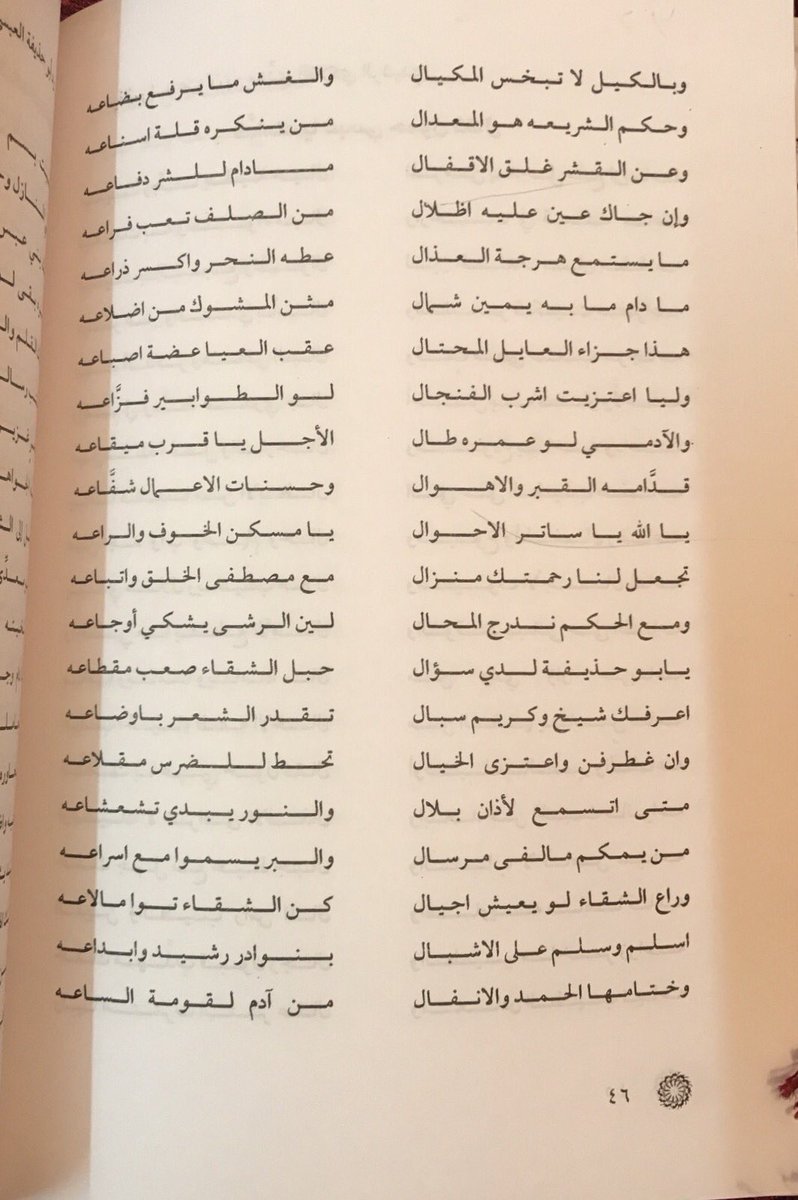 وبالكيل لا تبخس المكيال والغش ما يرفع بضاعه
وحكم الشريعه هو المعدال من ينكره قلة اسناعه
وعن القشر غلق الاقفال مادام للشر دفاعه
وإن جاك عين عليه اظلال من الصلف تعب فراعه
ما يستمع هرجة العذال عطه النحر واكسر ذراعه
ما دام ما به يمين شمال مثن المشوك من اضلاعه
هذا جزاء العايل المحتال عقب العيا عضة اصباعه
وليا اعتزيت اشرب الفنجال لو الطوابير فزَّاعه
والآدمي لو عمره طال الأجل يا قرب ميقاعه
قدَّامه القبر والاهوال وحسنات الاعمال شفَّاعه
يا الله يا ساتر الاحوال يا مسكن الخوف والراعه
تجعل لنا رحمتك منزال مع مصطفى الخلق واتباعه
ومع الحكم ندرج المحال لين الرشى يشكي أوجاعه
يابو حذيفة لدي سؤال حبل الشقاء صعب مقطاعه
اعرفك شيخ وكريم سبال تقدر الشعر باوضاعه
وان غطرفن واعتزى الخيال تحط للضرس مقلاعه
متى اتسمع لأذان بلال والنور يبدي تشعشاعه
من يمكم مالفى مرسال والبر يسموا مع اسراعه
وراع الشقاء لو يعيش اجيال كن الشقاء توا مالاعه
اسلم وسلم على الاشبال بنوادر رشيد وابداعه
وختامها الحمد والانفال من آدم لقومة الساعه
٤٦